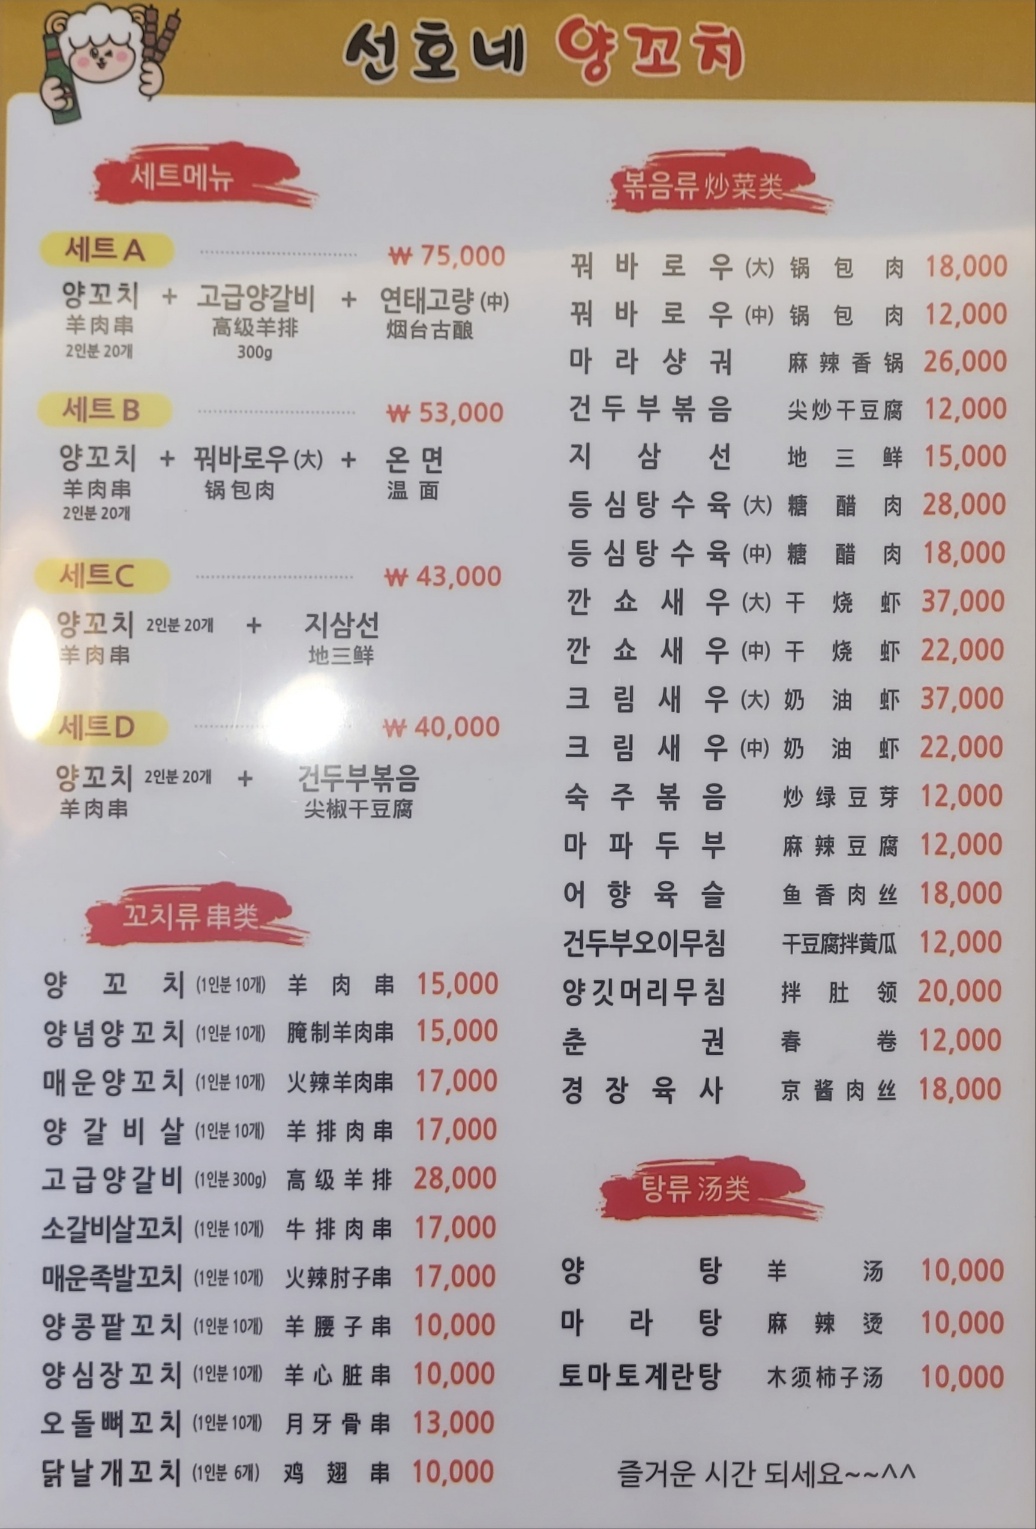 선호네 양꼬치
세트메뉴
세트 A ₩ 75,000
양꼬치 + 고급양갈비 + 연태고량 (中)
羊肉串 高级羊排 烟台古酿
2인분 20개 300g
세트 B ₩ 53,000
양꼬치 + 꿔바로우 (大) + 온면
羊肉串 锅包肉 温面
2인분 20개
세트C ₩ 43,000
양꼬치 2인분 20개 + 지삼선
羊肉串 地三鲜
세트D ₩ 40,000
양꼬치 2인분 20개 + 건두부볶음
羊肉串 尖椒干豆腐
꼬치류 串类
양꼬치 (1인분 10개) 羊肉串 15,000
양념양꼬치 (1인분 10개) 腌制羊肉串 15,000
매운양꼬치 (1인분 10개) 火辣羊肉串 17,000
양갈비살 (1인분 10개) 羊排肉串 17,000
고급양갈비 (1인분 300g) 高级羊排 28,000
소갈비살꼬치 (1인분 10개) 牛排肉串 17,000
매운족발꼬치 (1인분 10개) 火辣肘子串 17,000
양콩팥꼬치 (1인분 10개) 羊腰子串 10,000
양심장꼬치 (1인분 10개) 羊心脏串 10,000
오돌뼈꼬치 (1인분 10개) 月牙骨串 13,000
닭날개꼬치 (1인분 6개) 鸡翅串 10,000
볶음류 炒菜类
꿔바로우 (大) 锅包肉 18,000
꿔바로우 (中) 锅包肉 12,000
마라샹궈 麻辣香锅 26,000
건두부볶음 尖炒干豆腐 12,000
지삼선 地三鲜 15,000
등심탕수육 (大) 糖醋肉 28,000
등심탕수육 (中) 糖醋肉 18,000
깐쇼새우 (大) 干烧虾 37,000
깐쇼새우 (中) 干烧虾 22,000
크림새우 (大) 奶油虾 37,000
크림새우 (中) 奶油虾 22,000
숙주볶음 炒绿豆芽 12,000
마파두부 麻辣豆腐 12,000
어향육슬 鱼香肉丝 18,000
건두부오이무침 干豆腐拌黄瓜 12,000
양깃머리무침 拌肚领 20,000
춘권 春卷 12,000
경장육사 京酱肉丝 18,000
탕류 汤类
양탕 羊汤 10,000
마라탕 麻辣烫 10,000
토마토계란탕 木须柿子汤 10,000
즐거운 시간 되세요~~^^